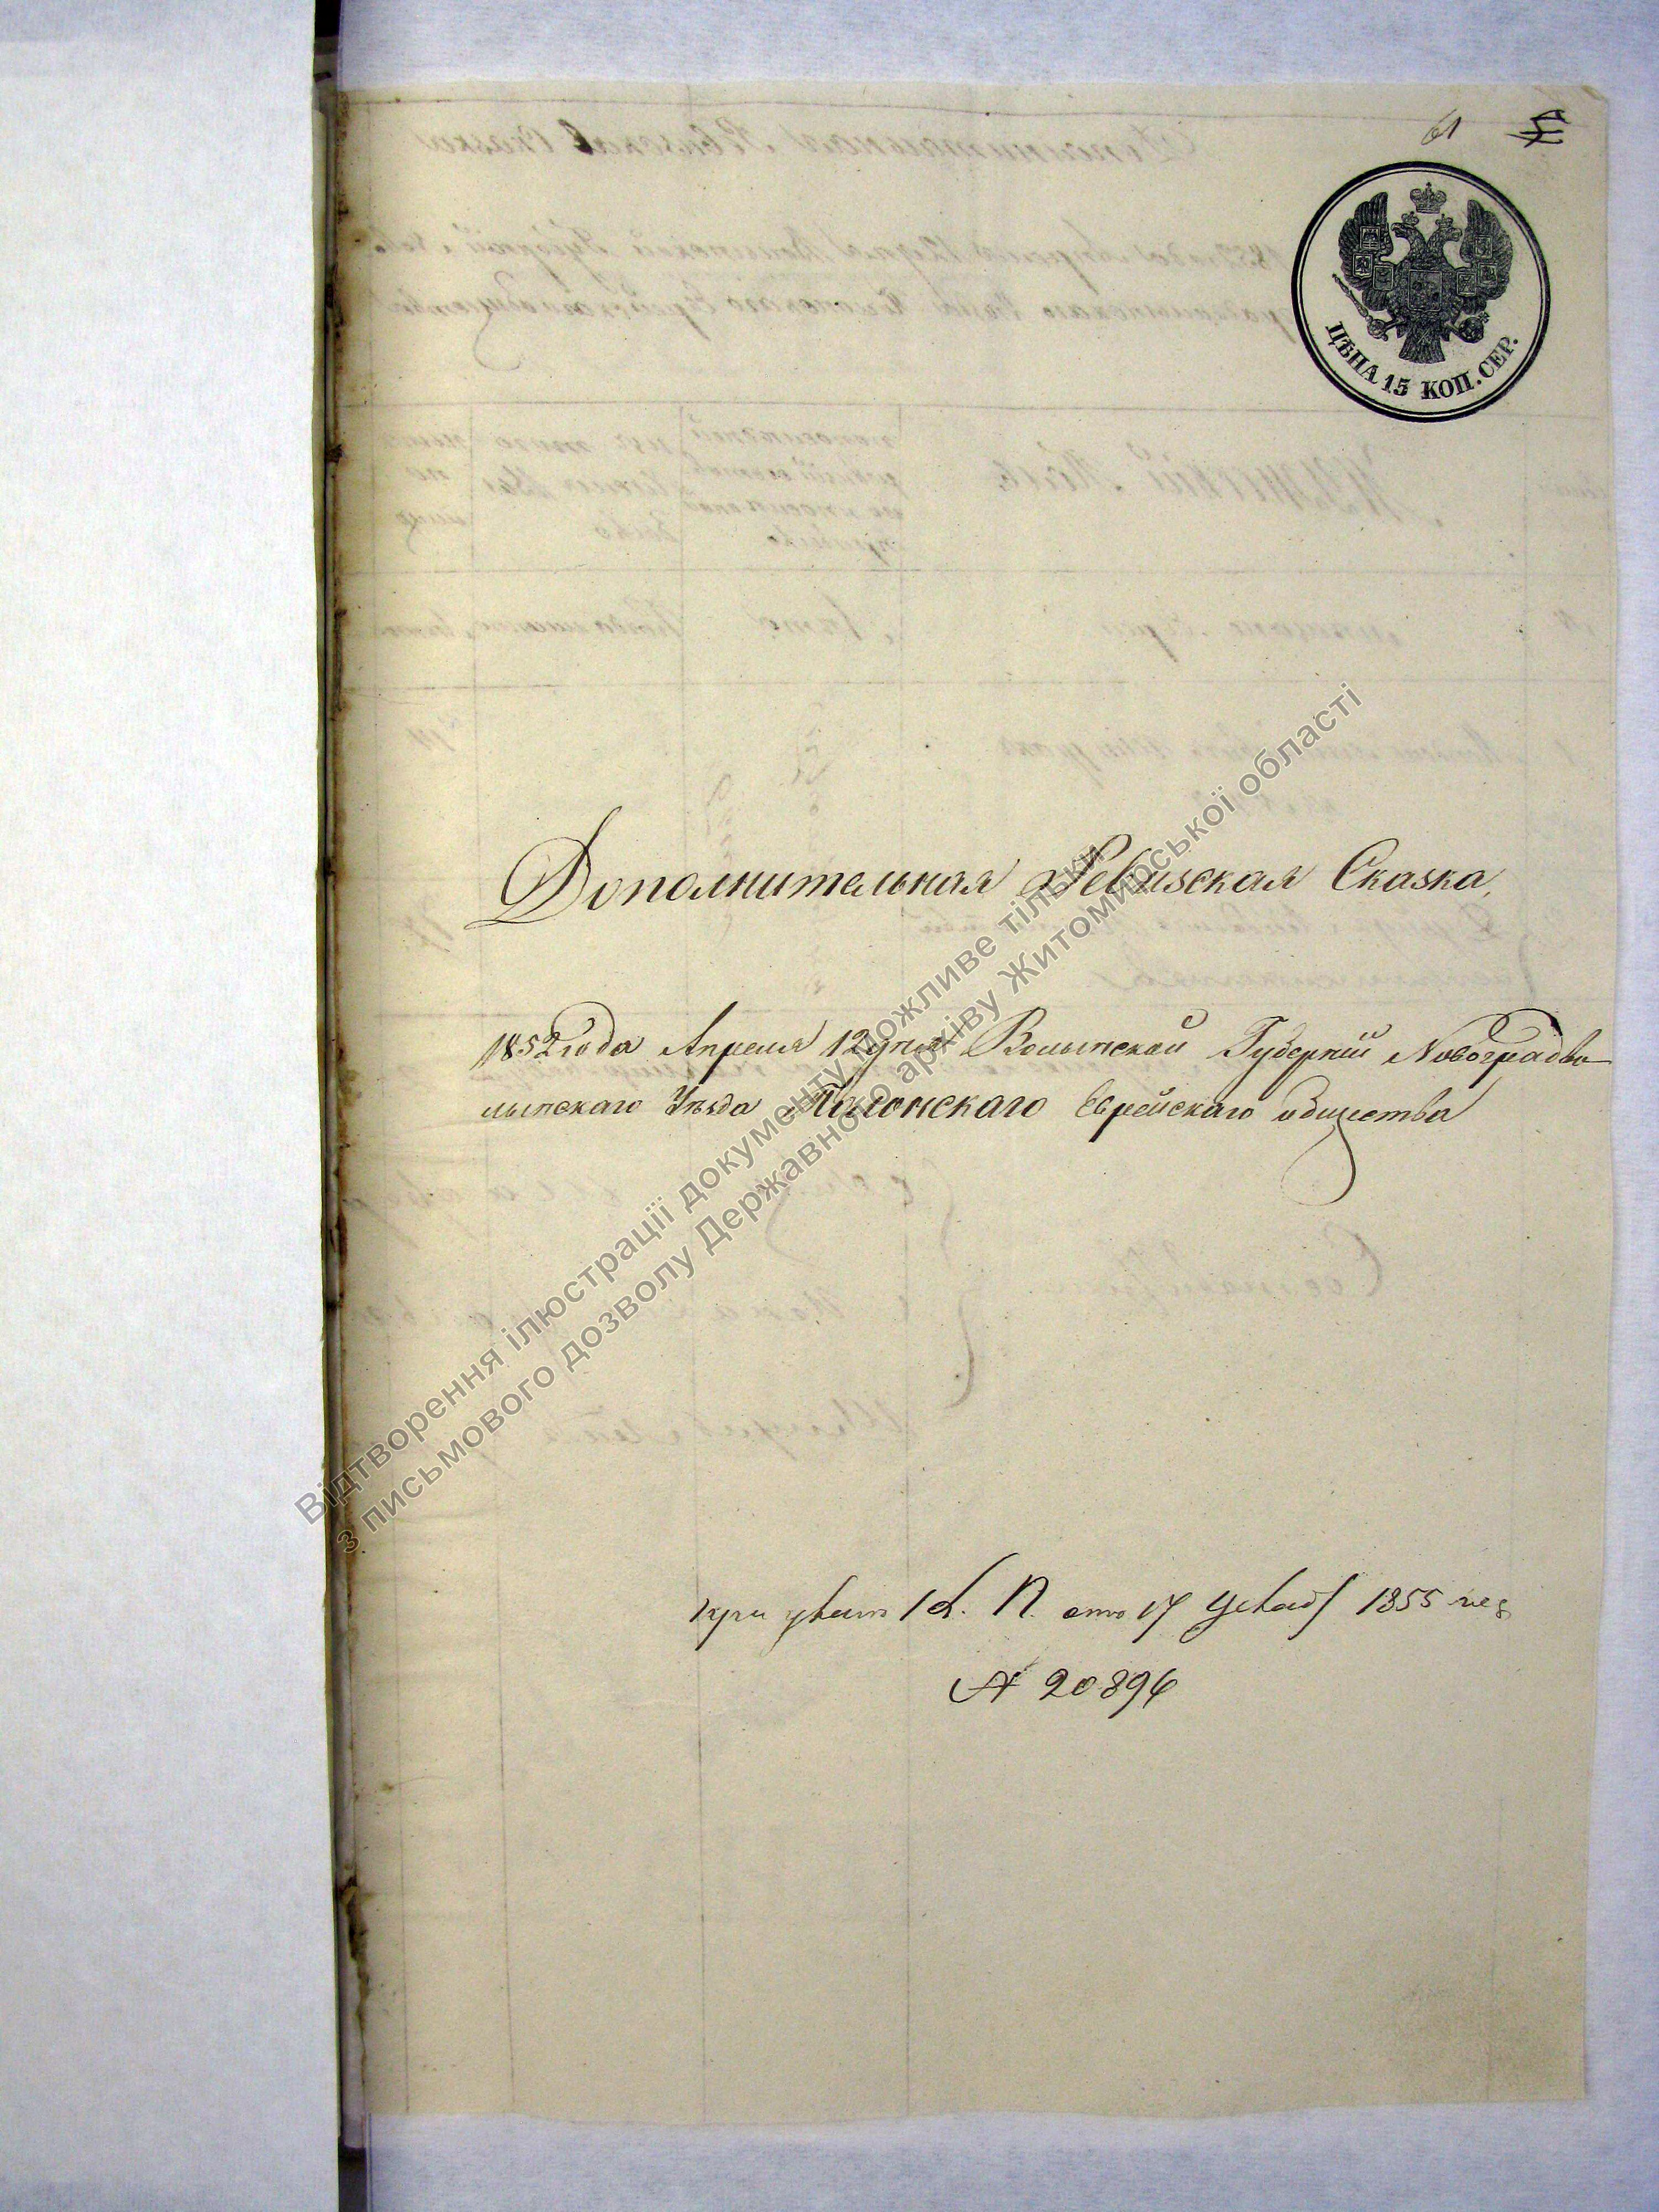 61
ЦѢНА 15 КОП. СЕР.
Дополнительная Ревизская Сказка,
1852 года Апреля 12 дня Волынской Губерніи Новоградво
лынскаго Уѣзда Полонскаго Еврейскаго общества
при указѣ К. П. от 17 Декаб 1855 год
№ 20896
Відтворення ілюстрації документу можливе тільки
з письмового дозволу Державного архіву Житомирської області